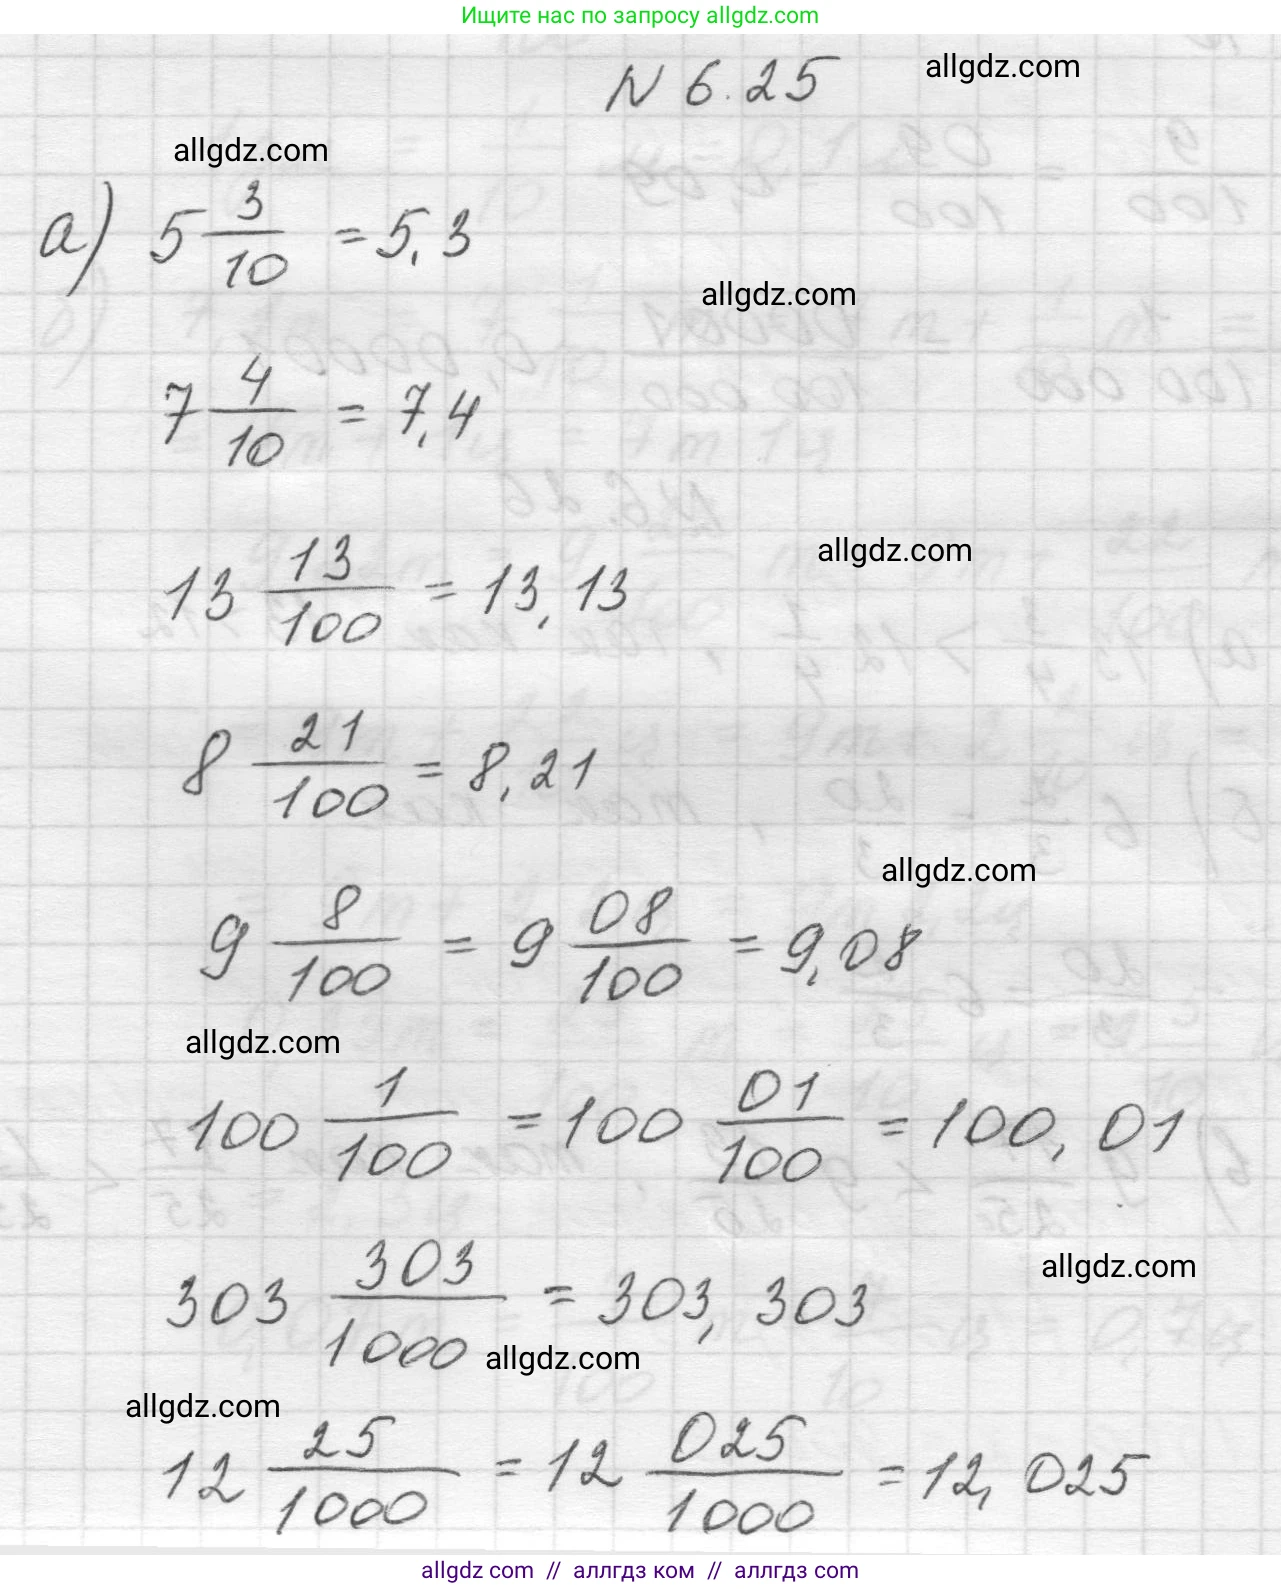 Ищите нас по запросу allgdz.com
N 6.25
allgdz.com
allgdz.com
а) 5 3/10 = 5,3
allgdz.com
7 4/10 = 7,4
allgdz.com
13 13/100 = 13,13
8 21/100 = 8,21
allgdz.com
9 8/100 = 9 08/100 = 9,08
allgdz.com
100 1/100 = 100 01/100 = 100,01
allgdz.com
303 303/1000 = 303,303
allgdz.com
allgdz.com
12 25/1000 = 12 025/1000 = 12,025
allgdz.com // аллгдз ком // аллгдз com